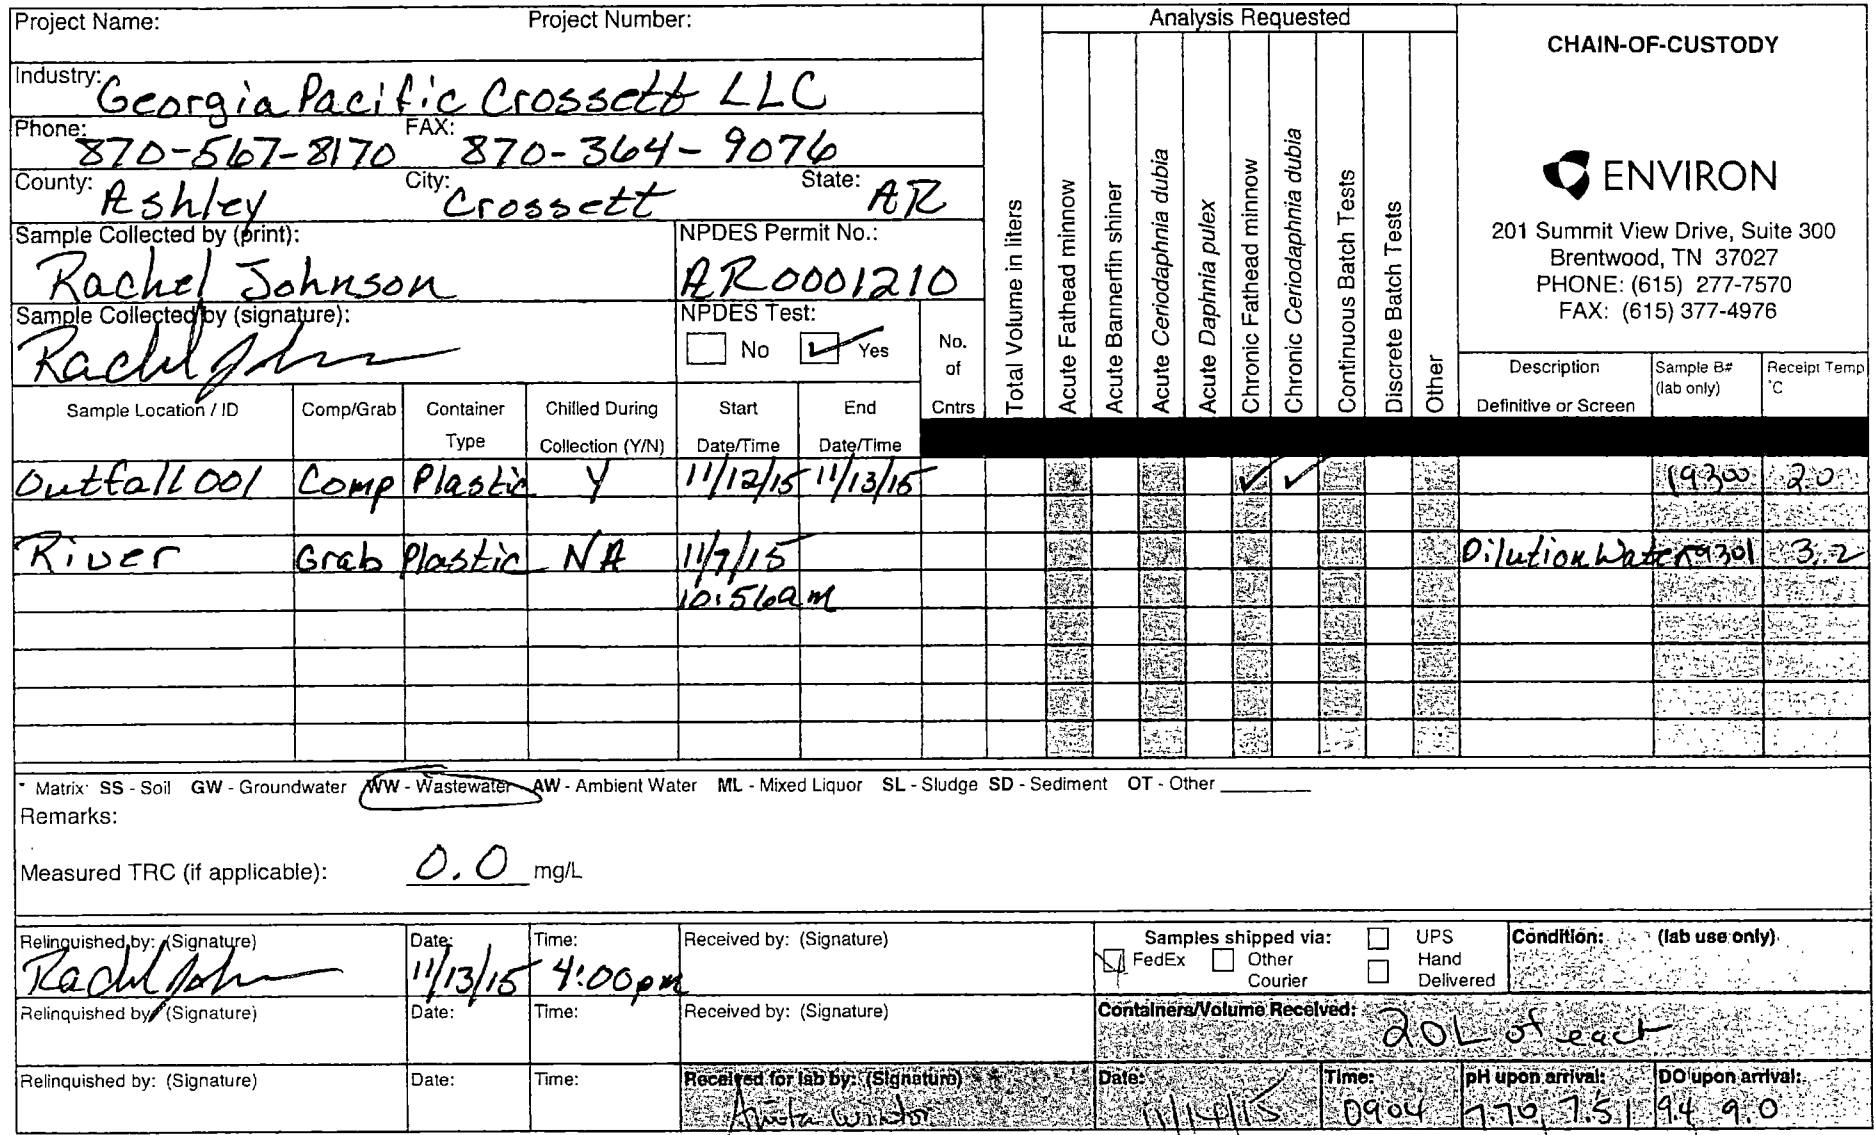 Project Name: Project Number:
Analysis Requested
CHAIN-OF-CUSTODY
Industry: Georgia Pacific Crossett LLC
Phone: 870-567-8170 FAX: 870-364-9076
County: Ashley City: Crossett State: AR
Sample Collected by (print): Rachel Johnson
NPDES Permit No.: AR0001210
Sample Collected by (signature): Rachel John
NPDES Test: No ✓ Yes
ENVIRON
201 Summit View Drive, Suite 300
Brentwood, TN 37027
PHONE: (615) 277-7570
FAX: (615) 377-4976
Sample Location / ID
Comp/Grab
Container Type
Chilled During Collection (Y/N)
Start Date/Time
End Date/Time
No. of Cntrs
Total Volume in liters
Acute Fathead minnow
Acute Bannerfin shiner
Acute Ceriodaphnia dubia
Acute Daphnia pulex
Chronic Fathead minnow
Chronic Ceriodaphnia dubia
Continuous Batch Tests
Discrete Batch Tests
Other
Description
Definitive or Screen
Sample B# (lab only)
Receipt Temp °C
Outfall 001 Comp Plastic Y 11/12/15 11/13/15 ✓ ✓ 19300 2.0
River Grab Plastic NA 11/7/15 Dilution Water 19301 3.2
10:56am
* Matrix: SS - Soil GW - Groundwater WW - Wastewater AW - Ambient Water ML - Mixed Liquor SL - Sludge SD - Sediment OT - Other
Remarks:
Measured TRC (if applicable): 0.0 mg/L
Relinquished by: (Signature) Rachel John Date: 11/13/15 Time: 4:00pm Received by: (Signature)
Samples shipped via: UPS
FedEx Other Courier Hand Delivered
Condition: (lab use only)
Relinquished by: (Signature) Date: Time: Received by: (Signature)
Containers/Volume Received: 20L of each
Relinquished by: (Signature) Date: Time: Received for lab by: (Signature) Date: 11/14/15 Time: 0904 pH upon arrival: 7.70, 7.51 DO upon arrival: 9.4 9.0